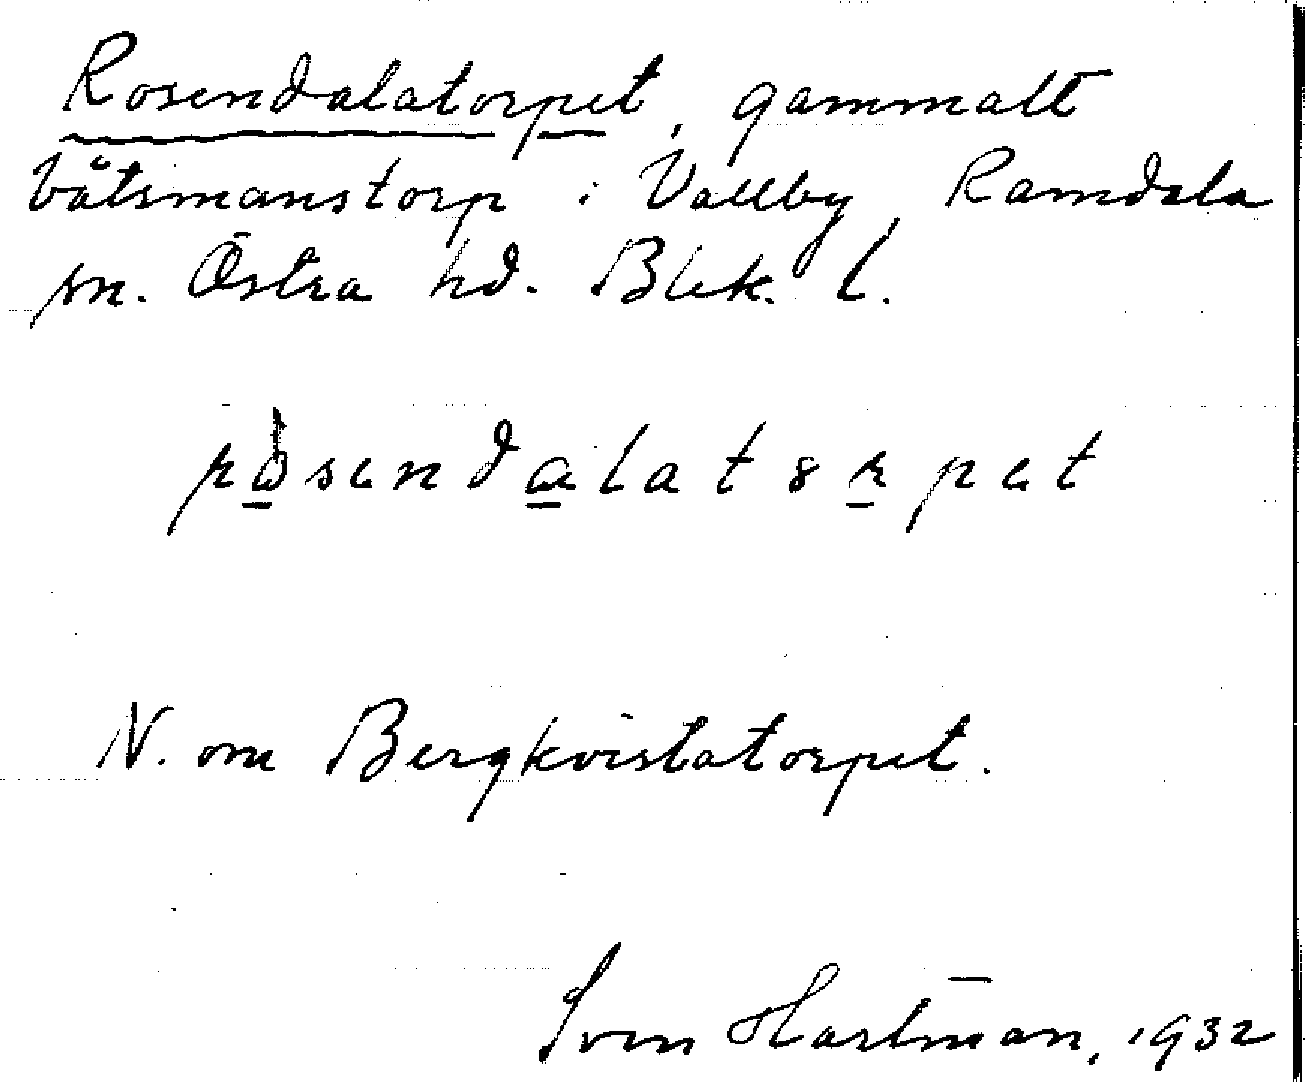 Rosendalatorpet, gammalt
båtsmanstorp i Vallby, Ramdala
sn. Östra hd. Blek. l.
rosendalatorpet
N. om Bergkvistatorpet.
Sven Hartman, 1932